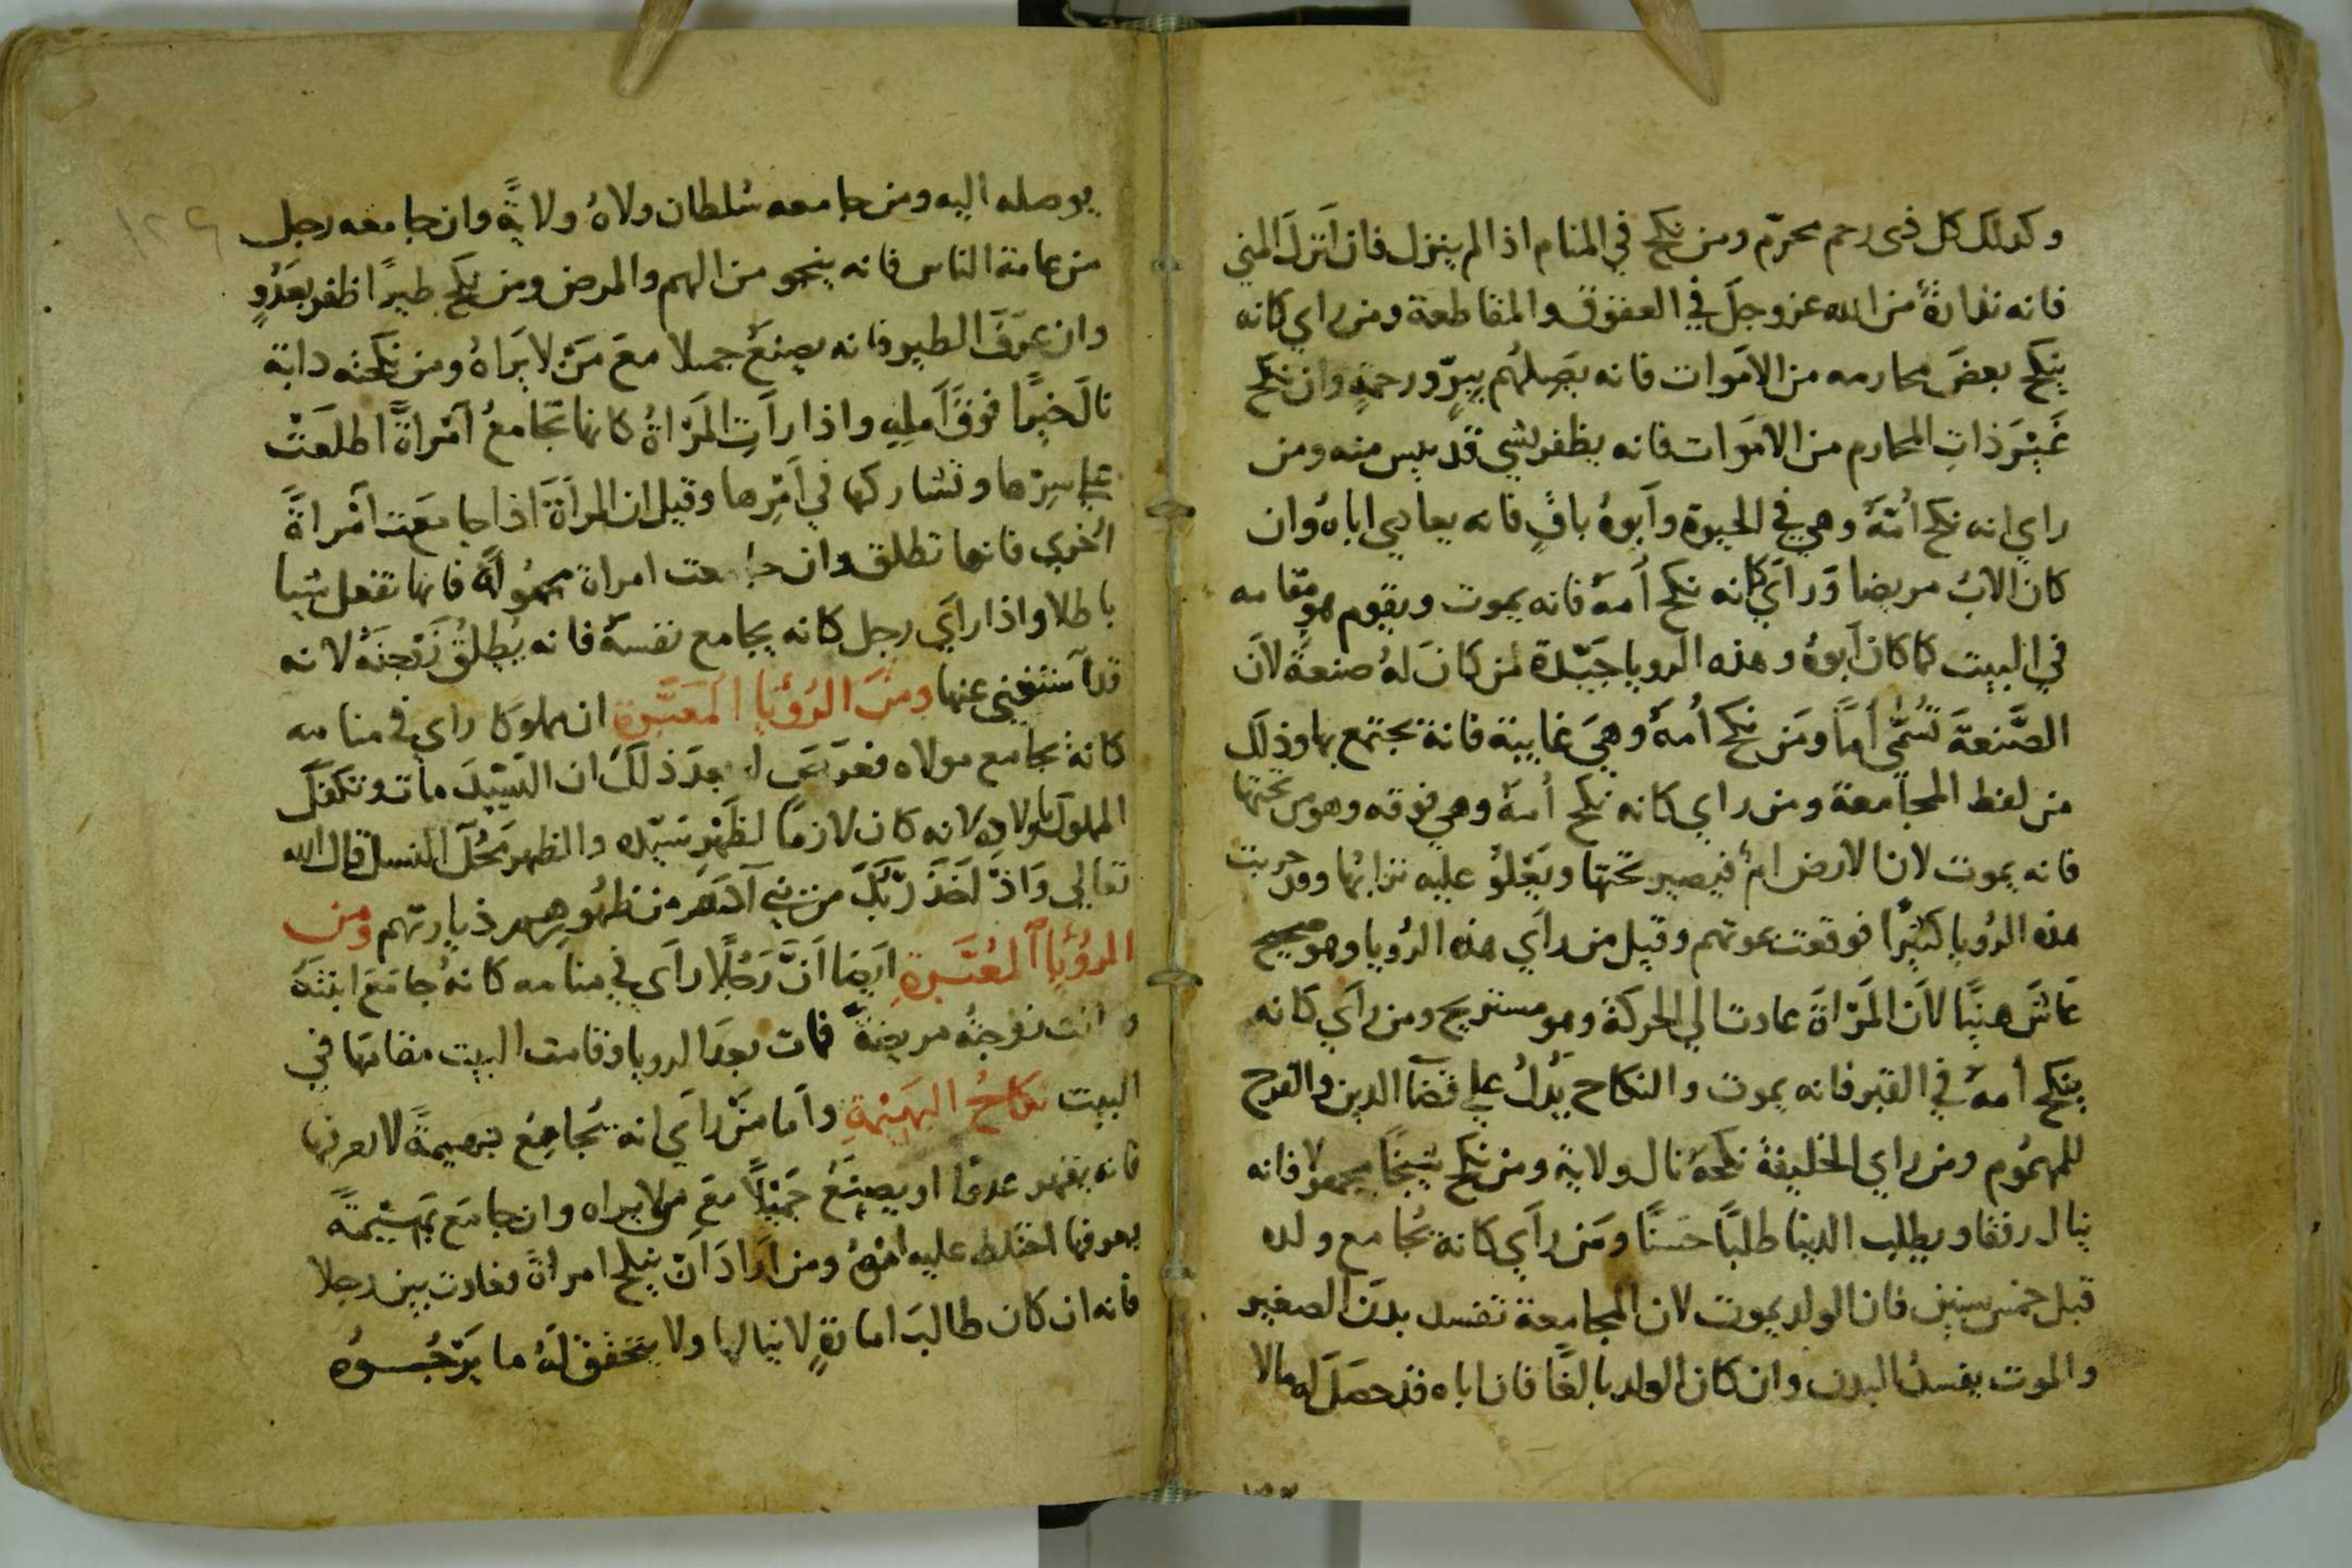 وكذلك كل ذى رحم محرّم ومن نكح في المنام اذا لم ينزل فان اَنزلَ المني
فانه نذارةٌ من الله عز وجلّ في العقوق والمقاطعة ومن راي كانه
ينكح بعضَ محارمه من الامَوات فانه يَصِلهُم ببِرّ ورحمةٍ وان نكح
غَيْرَ ذاتِ المحارم من الامَوات فانه يظفر بشي قد يىس منه ومن
راي انه نكح اُمّهُ وهي في الحيوة وَاَبوهُ باقٍ فانه يعادي اباهُ وان
كان الابُ مريضا وَراَي كانه نكح اُمهُ فانه يموت ويقوم هو مقامه
في البيت كما كان اَبوهُ وهذه الرويا جَيّدة لمن كانَ لهُ صنعةً لانَ
الصَّنعةَ تُسَمّى اُماً ومَن نكح اُمهُ وَهيَ غايبة فانهُ يجتمع بها وذلكَ
من لفظ المجامعة ومن راي كانه نكح اُمهُ وهي فوقه وهو من تحتها
فانه يموت لان الارض امٌ فيصير تحتها ويَعْلوُ عليه ترابُها وقد جربت
هذه الرُويا كثيْرًا فوقعت بموتهم وقيل من راَي هذه الرُويا وهو صحيح
عَاشَ هنِيًا لاَن المَرْاةَ عادت الي الحركة وهو مستريح ومن راَي كانه
ينكح اُمهُ في القبر فانه يموت والنكاح يَدُلُ علي قضآ الدين والفرح
للمهمُوم ومن راي الخليفةَ نكحهُ نال ولاية ومن نكح شيخًا مجهولا فانه
ينال رفقا ويطلب الدينا طلبًا حَسنًا ومَن راَي كانهُ يُجامع ولده
قبل خمس سنين فان الولد يموت لان المجامعة تفسد بدنَ الصغير
والموت يفسدُ البدن وان كان الولد بالغًا فان اباه قد حصَلَ له مالا
يوصله اليه ومن جامعه سُلطان ولاهُ ولايةً وان جامعه رجل
من عامة الناس فانه ينجو من الهم والمرض ومن نكح طيرًا ظفر بعَدُوٍ
وان عرَفَ الطير فانه يصنعُ جميلا معَ مَنْ لا يَرَاهُ ومن نكحته دابة
نالَ خيرًا فوقَ اَملِهِ واذا راَتِ المَرْاةُ كانها تُجامعُ آمْراةً اطلعَتْ
علي سِرّها وتشاركها في اَمْرِها وقيل ان المراَةَ اذا جامعَت اَمْراةً
اُخري فانها تطلق وان جامعت امراة مجهُولةً فانها تفعل شيا
باطلا واذا راَي رجل كانه يجامع نفسهُ فانه يُطلِقُ زَوْجتهُ لانه
قد اَستغني عنها ومنَ الرُؤيَا المُعَبَّرة ان مملوكا راي في منامه
كانهُ يجامع مولاه فعرَضَ له بعدَ ذلكَ ان السَيّدَ ماتَ وتكفلَ
المملوكُ باَولادِهِ لانه كان لازمًا لظَهْرِ سَيّده والظهر مَحَلّ النسل قال الله
تعالي وَاذْ اَخذَ رَبُكَ من بني آدمَ من ظهُورِهِم ذريارتهم ومن
الرُؤيا المُعَبَّرةِ ايَضا اَنَّ رَجُلًا راَي في منامه كانهُ جامَعَ ابنتهُ
وكانت زوجتُه مريضةً فماتت بعدَ الرويا وقامت البيت مقامَها في
البيت نِكاحُ البَهيْمةِ واَما مَنْ راَي انه يُجامِعُ بهيمةً لا يعرفها
فانه يقهر عدوًا او يصنَعُ جَمَيْلًا معَ من لا يراه وان جامَعَ بَهَيْمةً
يعرفها اختلط عليه اَمْرُهُ ومن اَرادَ اَنْ ينكح امراةً فعادت بين رجلا
فانه ان كان طالبَ امارةٍ لا ينالها ولا يتحققُ لهُ ما يَرْجُـوهُ